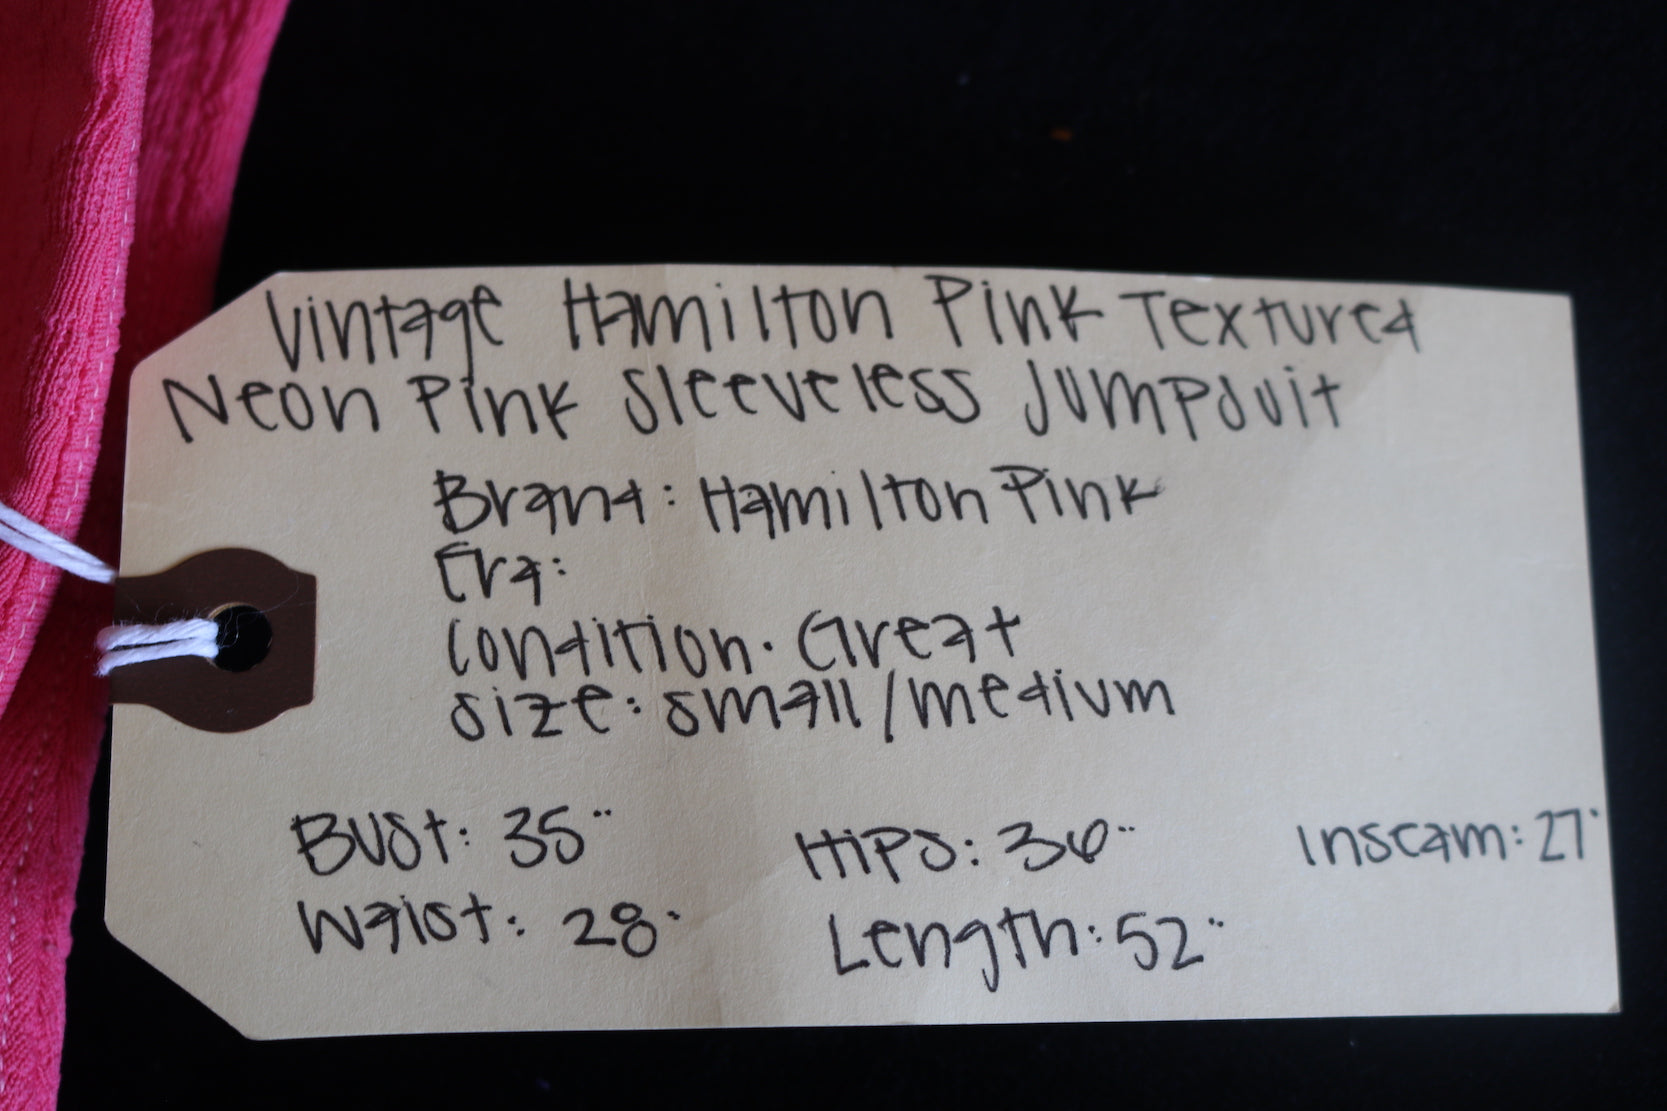 Vintage Hamilton Pink Textured
Neon Pink Sleeveless Jumpsuit
Brand: Hamilton Pink
Era:
Condition: Great
Size: Small/medium
Bust: 35"
Hips: 36"
Inseam: 27"
Waist: 28"
Length: 52"